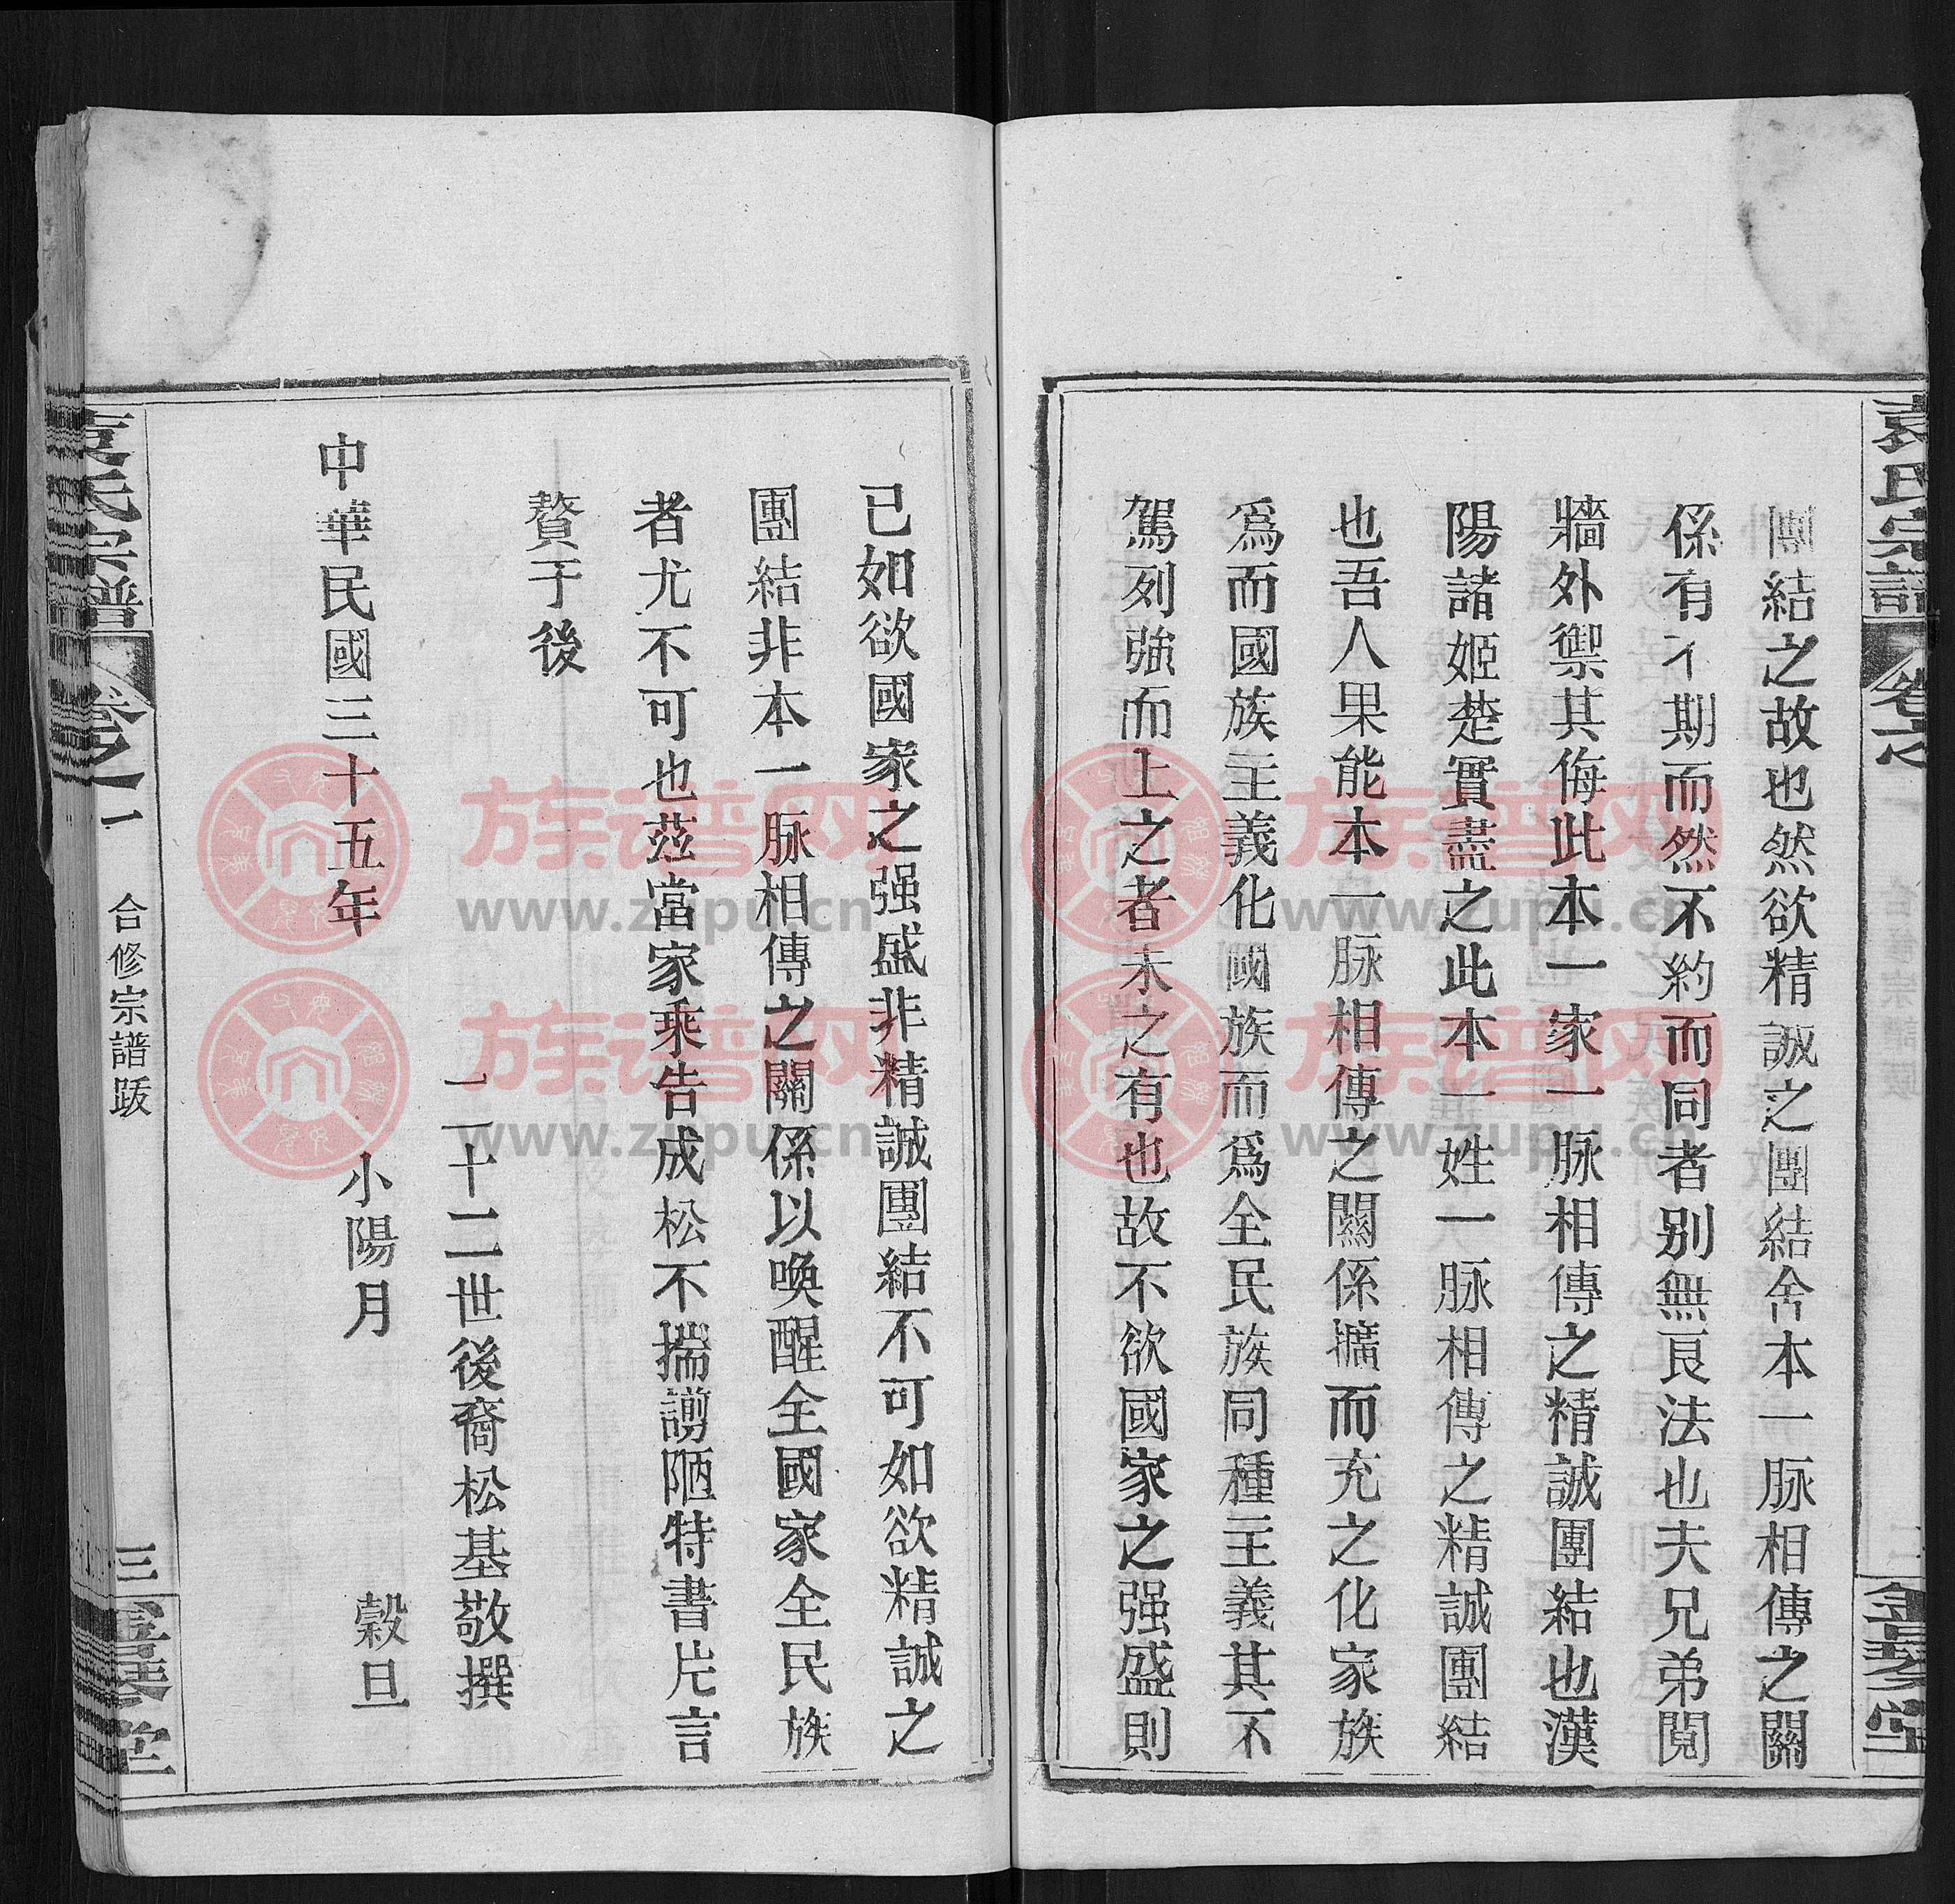 袁氏宗譜 卷之
金琴堂
團結之故也然欲精誠之團結舍本一脉相傳之關
係有不期而然不約而同者别無良法也夫兄弟閱
牆外禦其侮此本一家一脉相傳之精誠團結也漢
陽諸姬楚實盡之此本一姓一脉相傳之精誠團結
也吾人果能本一脉相傳之關係擴而充之化家族
爲而國族主義化國族而爲全民族同種主義其不
駕列強而上之者未之有也故不欲國家之强盛則
已如欲國家之强盛非精誠團結不可如欲精誠之
團結非本一脉相傳之關係以喚醒全國家全民族
者尤不可也茲當家乘告成松不揣譾陋特書片言
贅于後
二十二世後裔松基敬撰
中華民國三十五年 小陽月 穀旦
袁氏宗譜 卷之一 合修宗譜跋 三 金琴堂
族谱网
www.zupu.cn
族谱网
www.zupu.cn
族谱网
www.zupu.cn
族谱网
www.zupu.cn